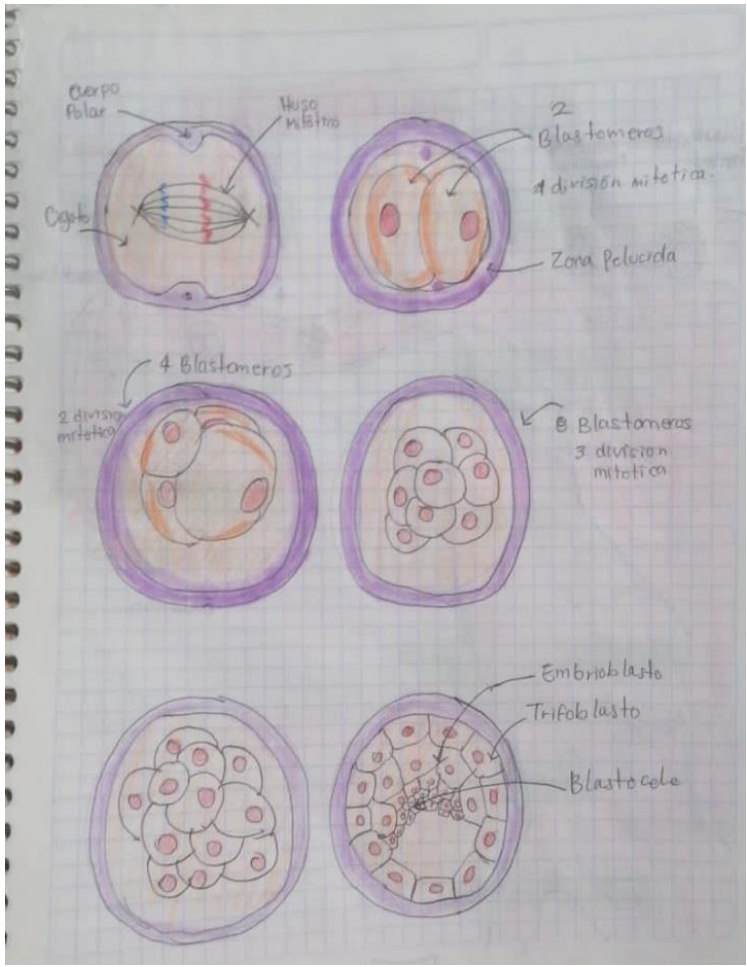 Cuerpo
Polar
Huso
Mitótico
Cigoto
2
Blastomeros
1 división mitotica.
Zona Pelucida
4 Blastomeros
2 division
mitotica
8 Blastomeros
3 division
mitotica
Embrioblasto
Trifoblasto
Blastocele